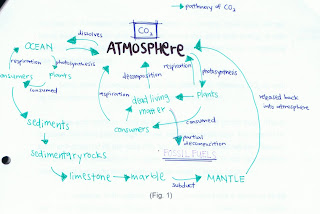 → pathway of CO₂
CO₂
dissolves
OCEAN
ATMOSPHERE
respiration
photosynthesis
decomposition
respiration
photosynthesis
consumers
plants
consumed
respiration
dead living
matter
plants
released back
into atmosphere
sediments
consumers
consumed
partial
decomposition
sedimentary rocks
FOSSIL FUELS
limestone
marble
subduct
MANTLE
(Fig. 1)